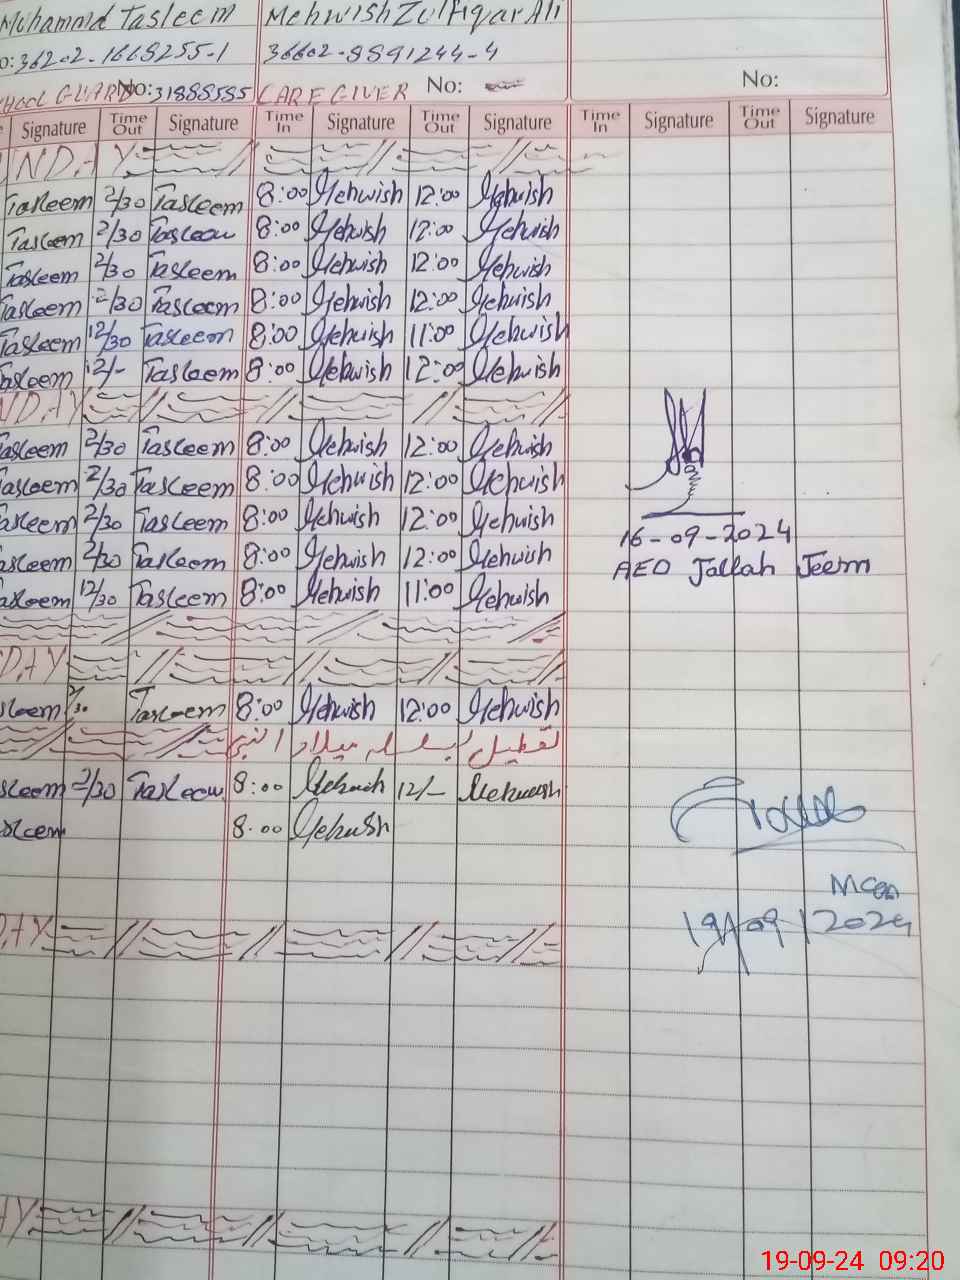 Mohammd Tasleem Mehwish Zulfiqar Ali
o: 36202-1668255-1 36602-8891244-4
HOOL GUARD No: 31888585 CARE GIVER No: No:
Signature Time Out Signature Time In Signature Time Out Signature Time In Signature Time Out Signature
UNDAY
Tasleem 2/30 Tasleem 8:00 Mehwish 12:00 Mehwish
Tasleem 2/30 Tasleem 8:00 Mehwish 12:00 Mehwish
Tasleem 2/30 Tasleem 8:00 Mehwish 12:00 Mehwish
Tasleem 2/30 Tasleem 8:00 Mehwish 12:00 Mehwish
Tasleem 12/30 Tasleem 8:00 Mehwish 11:00 Mehwish
asleem 12/- Tasleem 8:00 Mehwish 12:00 Mehwish
NDAY
asleem 2/30 Tasleem 8:00 Mehwish 12:00 Mehwish
asleem 2/30 Tasleem 8:00 Mehwish 12:00 Mehwish
asleem 2/30 Tasleem 8:00 Mehwish 12:00 Mehwish
16-09-2024
asleem 2/30 Tasleem 8:00 Mehwish 12:00 Mehwish
AEO Jallah Jeem
asleem 12/30 Tasleem 8:00 Mehwish 11:00 Mehwish
DAY
sleem 2/30 Tasleem 8:00 Mehwish 12:00 Mehwish
تعطیل بسلسلہ میلاد النبی
sleem 2/30 Tasleem 8:00 Mehwish 12/- Mehwish
asleem 8:00 Mehwish
19/09/2024
DAY
AY
19-09-24 09:20